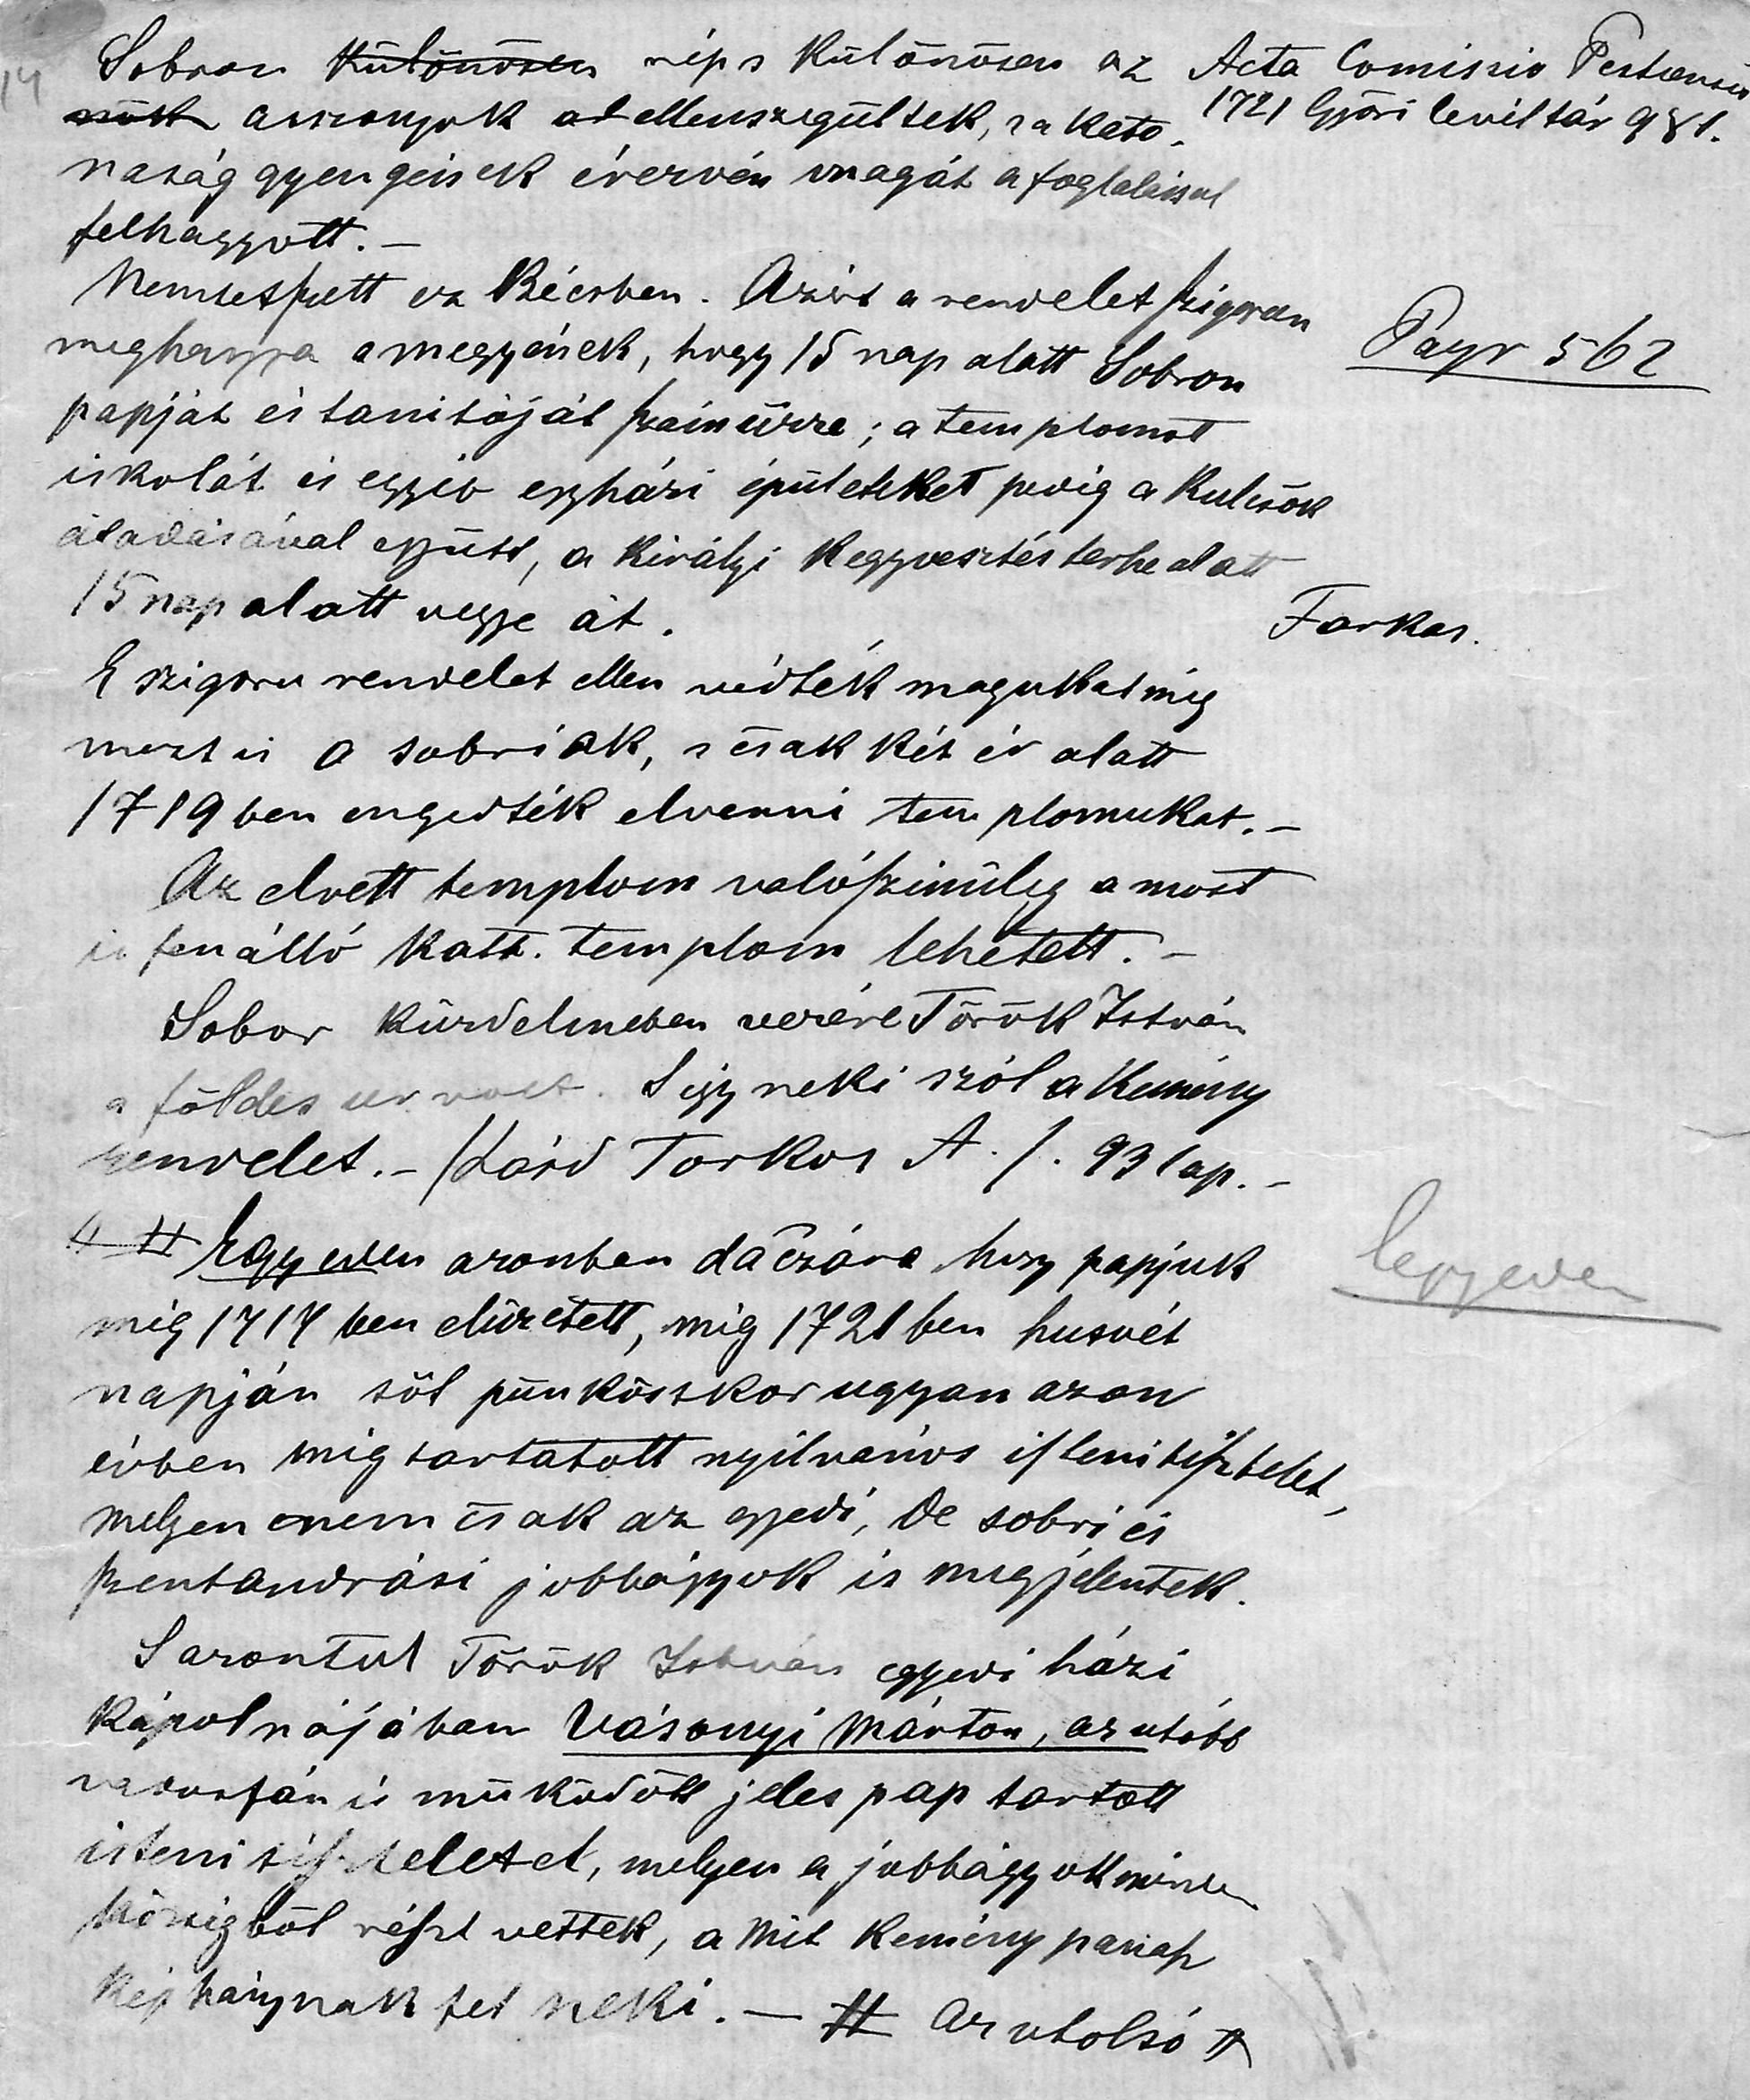 14
Sobron ~~különösen~~ nép s különösen az
~~nők~~ asszonyok ellenszegültek, s a kato-
naság gyengének érezvén magát a foglalással
felhagyott. —
Acta Comissio Pestiensis
1721 Győri levéltár 981.
Nem tetszett ez Bécsben. Azért a rendelet szigoruan
meghagyja a megyének, hogy 15 nap alatt Sobron
papját és tanitóját száműzze; a templomot
iskolát és egyéb egyházi épületeket pedig a kulcsok
átadásával együtt, a királyi kegyvesztés terhe alatt
15 nap alatt vegye át.
Payr 562
Farkas.
E szigoru rendelet ellen védték magukat még
most is a sobriak, s csak két év alatt
1719 ben engedték elvenni templomukat. —
Az elvett templom valószinüleg a most
is fenálló kath. templom lehetett. —
Sobor küzdelmeben vezére Török István
a földes ur volt. S igy neki szól a kemény
rendelet. — /Lásd Torkos A. /. 93 lap. —
# Egyeden azonban daczára hogy papjuk
még 1717 ben elüzetett, még 1721 ben husvét
napján sőt pünkösskor ugyan azon
évben még tartatott nyilvános istenitisztelet,
melyen nem csak az egyedi, de sobri és
szentandrási jobbágyok is megjelentek.
S azontul Török István egyedi házi
kápolnájában Vásonyi Márton, az utobb
vadosfán is müködött jeles pap tartott
isteni tiszteletet, melyen a jobbágyok minden
községből részt vettek, a mit kemény panasz
kép hánynak fel neki. — # Az utolsó #
Egyeden